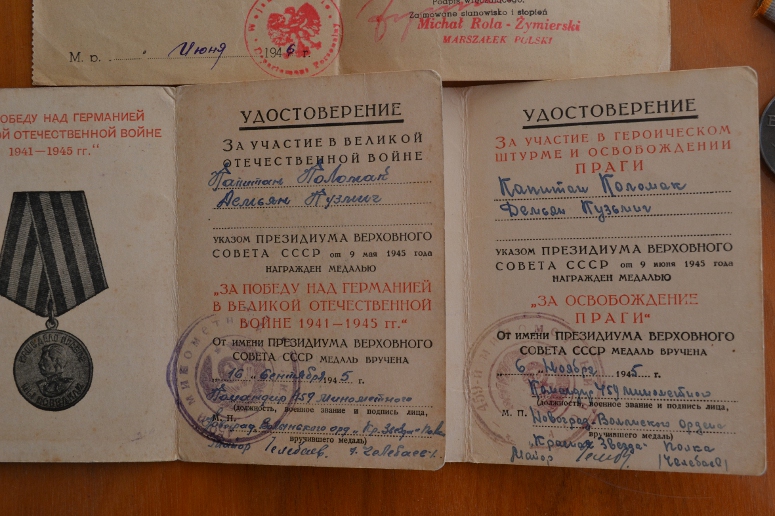 Подпись вручившего.
Zajmowane stanowisko i stopień
Michał Rola - Żymierski
MARSZAŁEK POLSKI
М. р. Июня 1946 г.
ПОБЕДУ НАД ГЕРМАНИЕЙ
ОЙ ОТЕЧЕСТВЕННОЙ ВОЙНЕ
1941—1945 гг."
УДОСТОВЕРЕНИЕ
ЗА УЧАСТИЕ В ВЕЛИКОЙ
ОТЕЧЕСТВЕННОЙ ВОЙНЕ
Капитан Коломак
Демьян Кузмич
УКАЗОМ ПРЕЗИДИУМА ВЕРХОВНОГО
СОВЕТА СССР от 9 мая 1945 года
НАГРАЖДЕН МЕДАЛЬЮ
„ЗА ПОБЕДУ НАД ГЕРМАНИЕЙ
В ВЕЛИКОЙ ОТЕЧЕСТВЕННОЙ
ВОЙНЕ 1941—1945 гг."
ОТ ИМЕНИ ПРЕЗИДИУМА ВЕРХОВНОГО
СОВЕТА СССР МЕДАЛЬ ВРУЧЕНА
„16" Сентября 1945 г.
Командир 459 Минометного
(должность, военное звание и подпись лица,
М. П.
вручившего медаль)
Майор Челебаев
УДОСТОВЕРЕНИЕ
ЗА УЧАСТИЕ В ГЕРОИЧЕСКОМ
ШТУРМЕ И ОСВОБОЖДЕНИИ
ПРАГИ
Капитан Коломак
Демьян Кузьмич
УКАЗОМ ПРЕЗИДИУМА ВЕРХОВНОГО
СОВЕТА СССР от 9 июня 1945 года
НАГРАЖДЕН МЕДАЛЬЮ
„ЗА ОСВОБОЖДЕНИЕ
ПРАГИ"
ОТ ИМЕНИ ПРЕЗИДИУМА ВЕРХОВНОГО
СОВЕТА СССР МЕДАЛЬ ВРУЧЕНА
„6" Ноября 1945 г.
Командир 459 минометного
(должность, военное звание и подпись лица,
М. П. Новоград-Волынского Ордена
вручившего медаль)
"Красная Звезда" Полка
Майор (Челебаев)